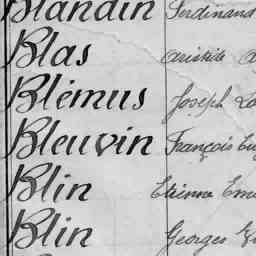 Blandin Ferdinand
Blas Aristide
Blémus Joseph
Bleuvin François
Blin Etienne
Blin Georges